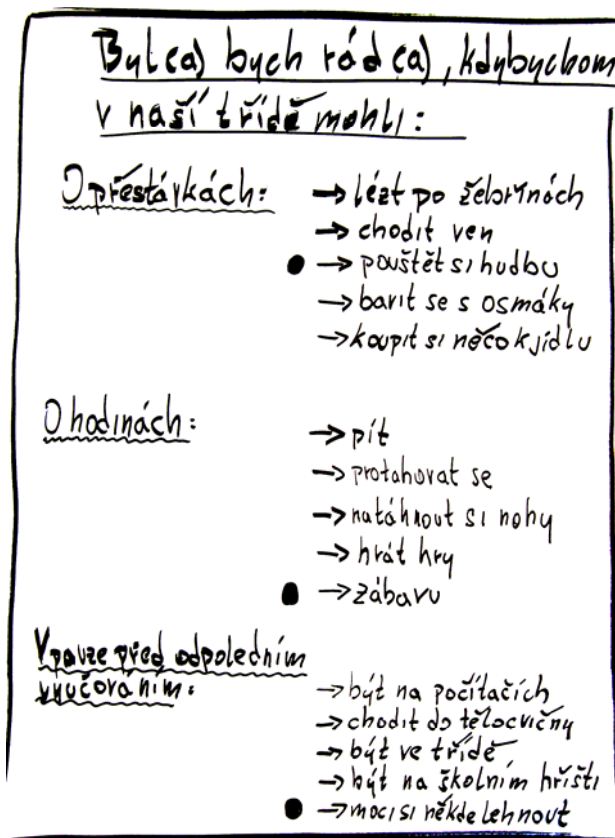 Byl(a) bych rád(a), kdybychom
v naší třídě mohli:
O přestávkách:
→ lézt po žebřinách
→ chodit ven
● → pouštět si hudbu
→ bavit se s osmáky
→ koupit si něco k jídlu
O hodinách:
→ pít
→ protahovat se
→ natáhnout si nohy
→ hrát hry
● → zábavu
V pauze před odpoledním
vyučováním:
→ být na počítačích
→ chodit do tělocvičny
→ být ve třídě
→ být na školním hřišti
● → moci si někde lehnout